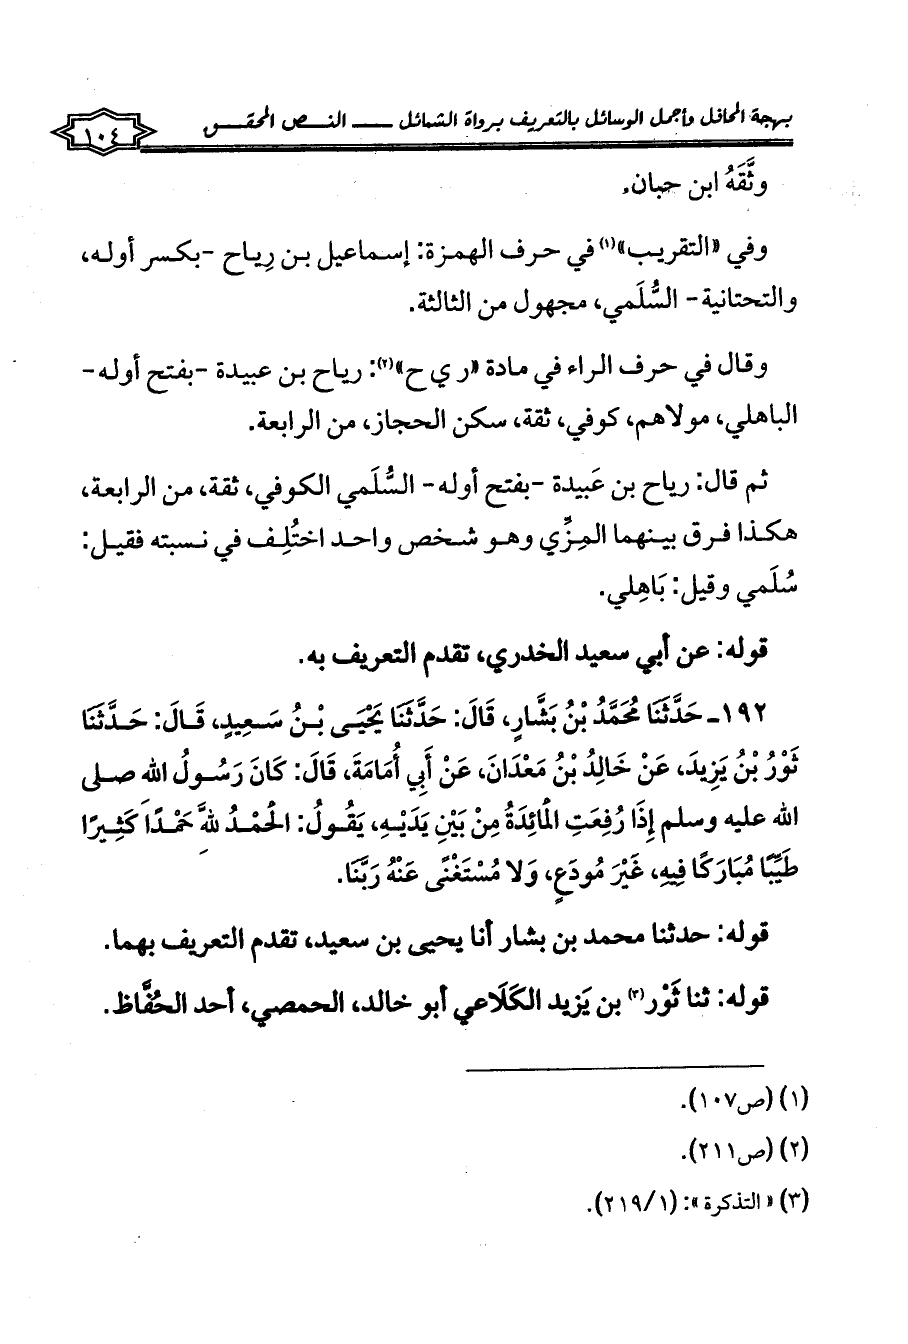 بهجة المحافل وأجمل الوسائل بالتعريف برواة الشمائل ـــ النص المحقق
١٠٤
وثَّقَهُ ابن حبان.
وفي «التقريب»(١) في حرف الهمزة: إسماعيل بن رِياح -بكسر أوله،
والتحتانية- السُّلَمي، مجهول من الثالثة.
وقال في حرف الراء في مادة «ر ي ح»(٢): رياح بن عبيدة -بفتح أوله-
الباهلي، مولاهم، كوفي، ثقة، سكن الحجاز، من الرابعة.
ثم قال: رياح بن عَبيدة -بفتح أوله- السُّلَمي الكوفي، ثقة، من الرابعة،
هكذا فرق بينهما المِزِّي وهو شخص واحد اختُلِف في نسبته فقيل:
سُلَمي وقيل: بَاهِلي.
قوله: عن أبي سعيد الخدري، تقدم التعريف به.
١٩٢ـ حَدَّثَنَا مُحَمَّدُ بْنُ بَشَّارٍ، قَالَ: حَدَّثَنَا يَحْيَى بْنُ سَعِيدٍ، قَالَ: حَدَّثَنَا
ثَوْرُ بْنُ يَزِيدَ، عَنْ خَالِدُ بْنُ مَعْدَانَ، عَنْ أَبِي أُمَامَةَ، قَالَ: كَانَ رَسُولُ الله صلى
الله عليه وسلم إِذَا رُفِعَتِ المْائِدَةُ مِنْ بَيْنِ يَدَيْهِ، يَقُولُ: الحْمْدُ للهَّ حَمْدًا كَثِيرًا
طَيِّبًا مُبَارَكًا فِيهِ، غَيْرَ مُودَعٍ، وَلا مُسْتَغْنًى عَنْهُ رَبَّنَا.
قوله: حدثنا محمد بن بشار أنا يحيى بن سعيد، تقدم التعريف بهما.
قوله: ثنا ثَوْر(٣) بن يَزيد الكَلَاعي أبو خالد، الحمصي، أحد الحُفَّاظ.
(١) (ص١٠٧).
(٢) (ص٢١١).
(٣) «التذكرة»: (٢١٩/١).